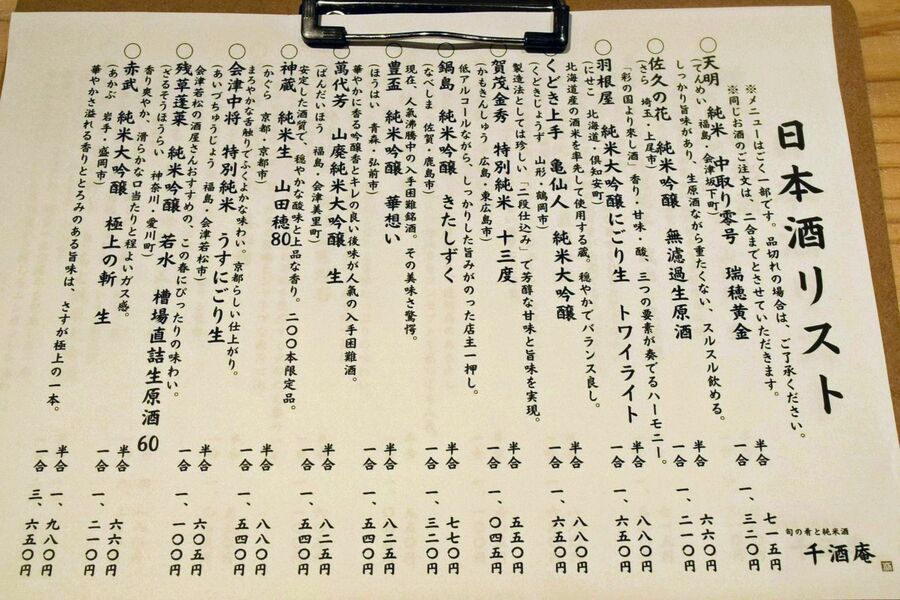 日本酒リスト
※メニューはごく一部です。品切れの場合は、ご了承ください。
※同じお酒のご注文は、二合までとさせていただきます。
〇天明 純米 中取り零号 瑞穂黄金
(てんめい 福島・会津坂下町)
しっかり旨味があり、生原酒ながら重たくない、スルスル飲める。
半合 七一五円
一合 一、三二〇円
〇佐久の花 純米吟醸 無濾過生原酒
(さら 埼玉・上尾市)
「彩の国より来し酒」香り・甘味・酸、三つの要素が奏でるハーモニー。
半合 六六〇円
一合 一、二一〇円
〇羽根屋 純米大吟醸にごり生 トワイライト
(にせこ 北海道・倶知安町)
北海道産の酒米を率先して使用する蔵。穏やかでバランス良し。
半合 八八〇円
一合 一、六五〇円
くどき上手 亀仙人 純米大吟醸
(くどきじょうず 山形・鶴岡市)
製造法としては珍しい「二段仕込み」で芳醇な甘味と旨味を実現。
半合 八八〇円
一合 一、六五〇円
〇賀茂金秀 特別純米 十三度
(かもきんしゅう 広島・東広島市)
低アルコールながら、しっかりした旨みがのった店主一押し。
半合 五五〇円
一合 一、〇四五円
〇鍋島 純米吟醸 きたしずく
(なべしま 佐賀・鹿島市)
現在、人気沸騰中の入手困難銘酒。その美味さ驚愕。
半合 七七〇円
一合 一、三二〇円
〇豊盃 純米吟醸 華想い
(ほうはい 青森・弘前市)
華やかに香る吟醸香とキレの良い後味が人気の入手困難酒。
半合 八二五円
一合 一、五四〇円
〇萬代芳 山廃純米大吟醸 生
(ばんだいほう 福島・会津美里町)
安定した酒質で、穏やかな酸味と上品な香り。二〇〇本限定品。
半合 八二五円
一合 一、五四〇円
〇神蔵 純米生 山田穂80
(かぐら 京都・京都市)
まろやかな舌触りでふくよかな味わい。京都らしい仕上がり。
半合 八八〇円
一合 一、五四〇円
〇会津中将 特別純米 うすにごり生
(あいづちゅうじょう 福島・会津若松市)
会津若松の酒屋さんおすすめの、この春にぴったりの味わい。
半合 六〇五円
一合 一、一〇〇円
〇残草蓬莱 純米吟醸 若水 槽場直詰生原酒60
(ざるそうほうらい 神奈川・愛川町)
香り爽やか、滑らかな口当たりと程よいガス感。
半合 六六〇円
一合 一、二一〇円
〇赤武 純米大吟醸 極上の斬 生
(あかぶ 岩手・盛岡市)
華やかさ溢れる香りととろみのある旨味は、さすが極上の一本。
半合 一、九八〇円
一合 三、六五〇円
旬の肴と純米酒
千酒庵